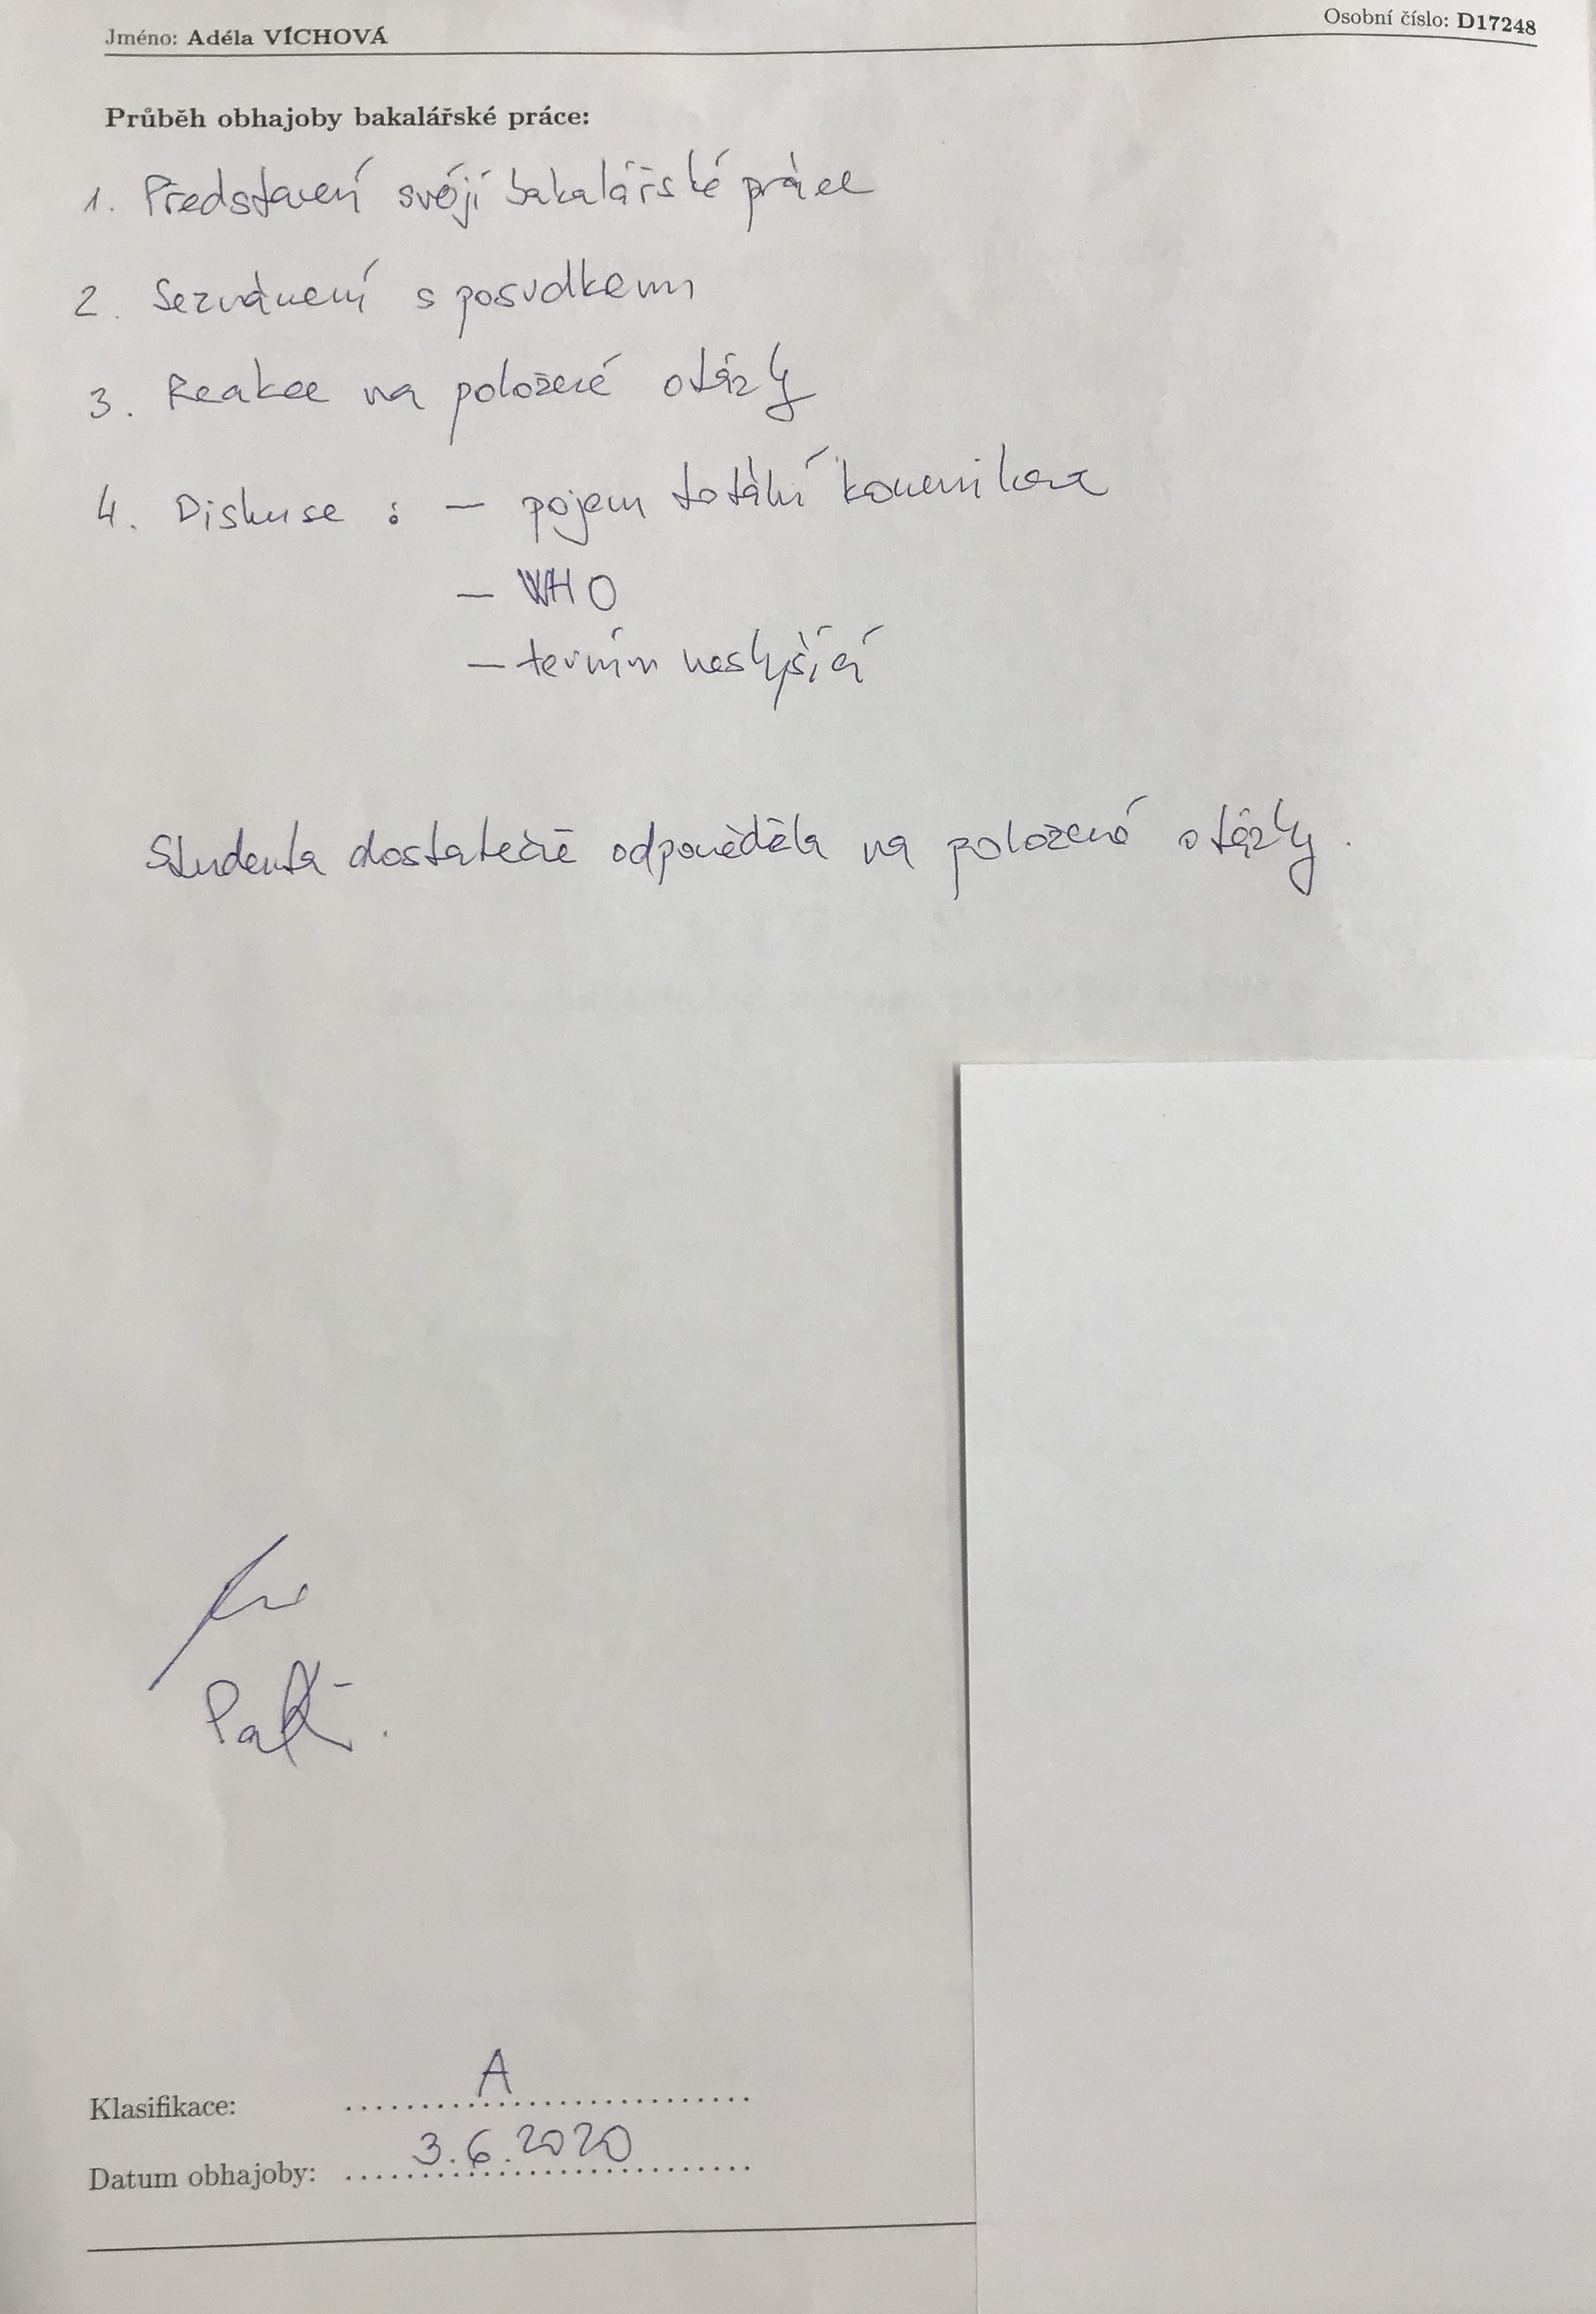 Jméno: Adéla VÍCHOVÁ Osobní číslo: D17248
Průběh obhajoby bakalářské práce:
1. Představení svojí bakalářské práce
2. Seznámení s posudkem
3. Reakce na položené otázky
4. Diskuse : – pojem totální komunikace
– WHO
– termín neslyšící
Studentka dostatečně odpověděla na položené otázky.
Klasifikace: A
Datum obhajoby: 3.6.2020